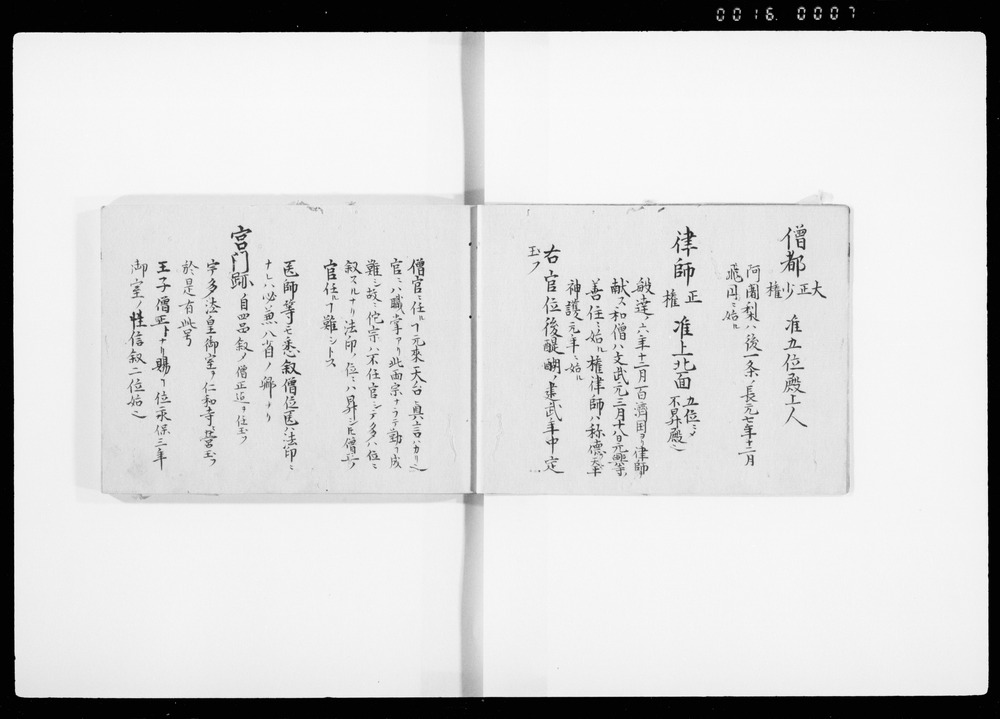 0016 0007
僧都 大正少権 准五位殿上人
阿闍梨ハ後一条ノ長元七年十二月
飛円ニ始ル
律師 正権 准上北面 五位ニ〆不昇殿也
敏達ノ六年十二月百済国ヨリ律師
献ス和僧ハ文武元三月十八日元興寺ノ
善任ニ始ル権律師ハ称徳天平
神護元年ニ始ル
右官位後醍醐ノ建武年中定
玉フ
僧官ニ任ルヿ元来天台真言ハカリ也
官ニハ職掌アリ此両宗ナラテ勤リ成
難シ故ニ佗宗ハ不任官シテ多ハ位ニ
叙スルナリ法印ノ位ニハ昇シ𪜈僧正ノ
官任ルヿ難シトス
医師等モ悉叙僧位医ハ法印ニ
ナレハ必兼八省ノ卿ナリ
宮門跡 自四品叙ノ僧正迄ヲ任玉フ
宇多法皇御室ヲ仁和寺営玉フ
於是有此号
王子僧正トナリ賜リ位永保三年
御室ノ性信叙二位始也